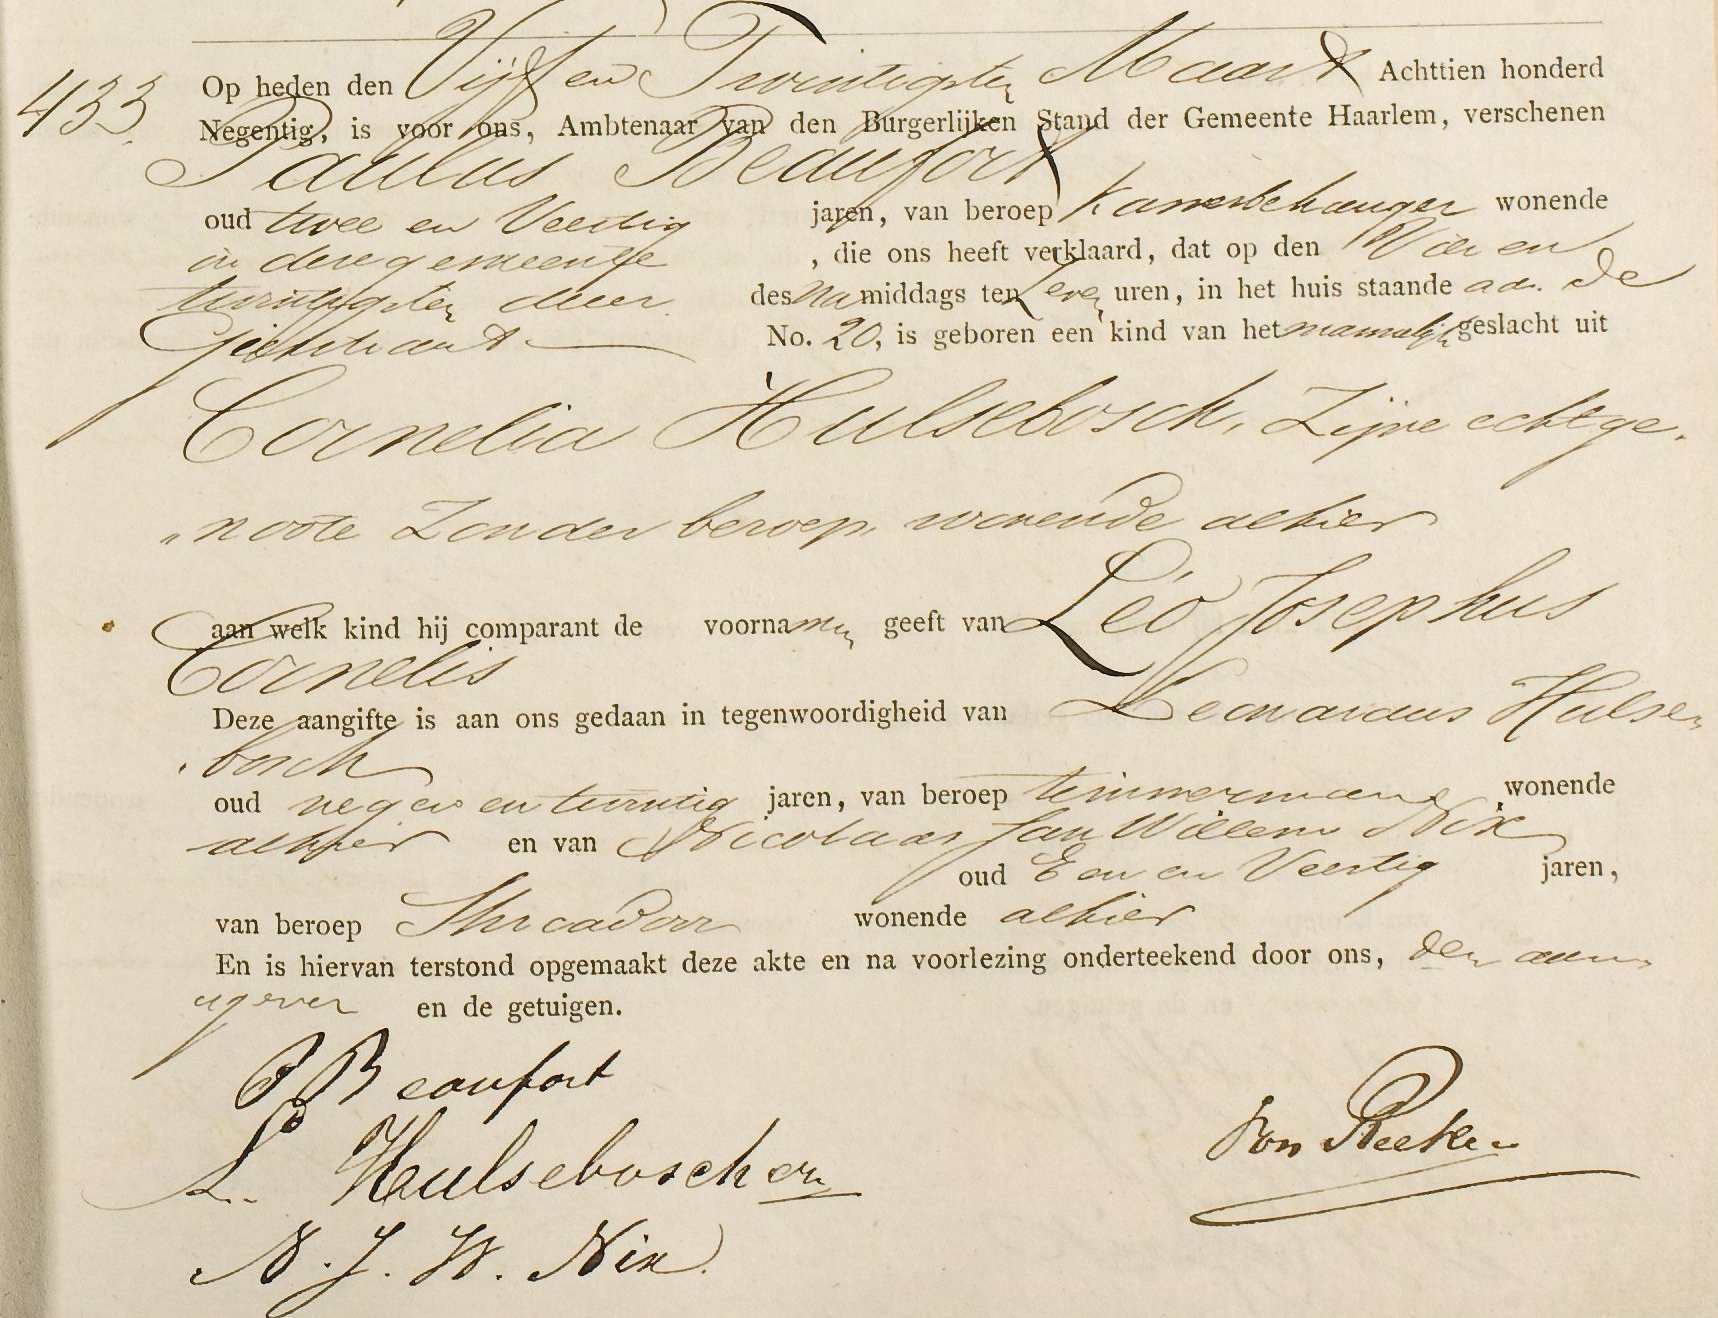 433.
Op heden den Vijf en Twintigsten Maart Achttien honderd
Negentig, is voor ons, Ambtenaar van den Burgerlijken Stand der Gemeente Haarlem, verschenen
Paulus Beaufort
oud twee en Veertig jaren, van beroep Kamerbehanger wonende
in deze gemeente, die ons heeft verklaard, dat op den Vier en
twintigsten dezer des namiddags ten een uren, in het huis staande aan de
Gierstraat No. 20, is geboren een kind van het mannelijk geslacht uit
Cornelia Hulsebosch, Zijne echtge„
„noote Zonder beroep, wonende alhier
aan welk kind hij comparant de voornamen geeft van Léo Josephus
Cornelis
Deze aangifte is aan ons gedaan in tegenwoordigheid van Leonardus Hulse„
„bosch
oud negen en twintig jaren, van beroep timmerman, wonende
alhier en van Nicolaas Jan Willem Nix
oud Een en Veertig jaren,
van beroep wonende alhier
En is hiervan terstond opgemaakt deze akte en na voorlezing onderteekend door ons, den aan„
„gever en de getuigen.
P Beaufort
L. Hulsebosch
N. J. W. Nix.